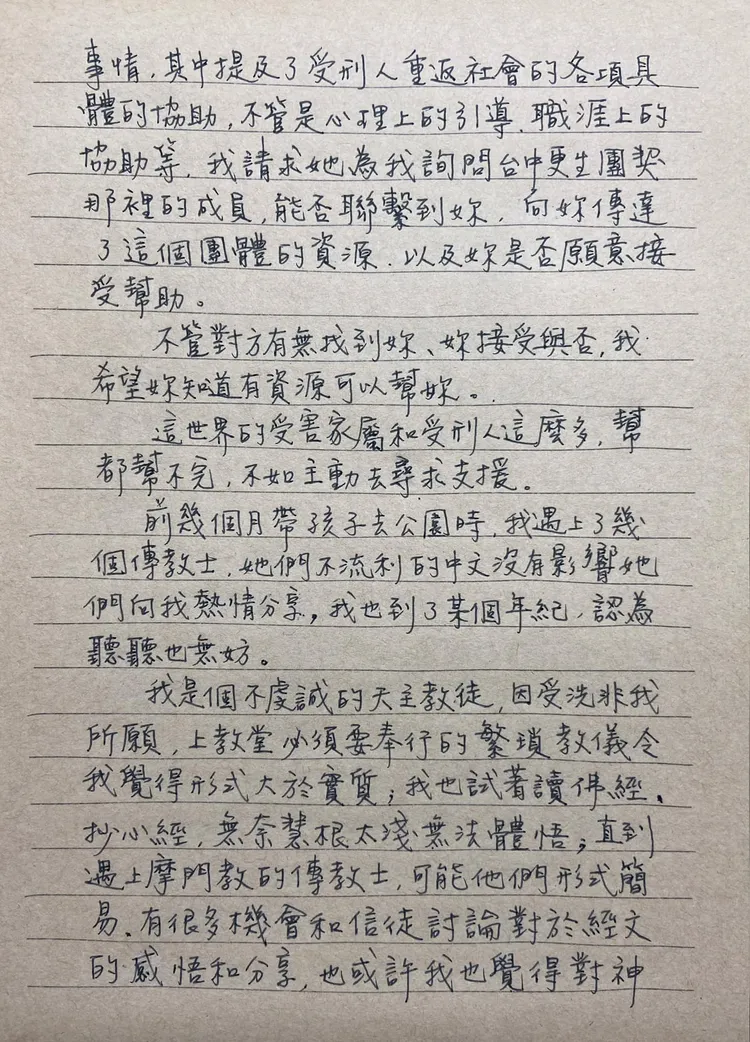 事情,其中提及了受刑人重返社會的各項具
體的協助,不管是心理上的引導、職涯上的
協助等,我請求她為我詢問台中更生團契
那裡的成員,能否聯繫到妳,向妳傳達
了這個團體的資源、以及妳是否願意接
受幫助。
不管對方有無找到妳、妳接受與否,我
希望妳知道有資源可以幫妳。
這世界的受害家屬和受刑人這麼多,幫
都幫不完,不如主動去尋求支援。
前幾個月帶孩子去公園時,我遇上了幾
個傳教士,她們不流利的中文沒有影響她
們向我熱情分享,我也到了某個年紀,認為
聽聽也無妨。
我是個不虔誠的天主教徒,因受洗非我
所願,上教堂必須要奉行的繁瑣教儀令
我覺得形式大於實質;我也試著讀佛經、
抄心經,無奈慧根太淺無法體悟;直到
遇上摩門教的傳教士,可能他們形式簡
易、有很多機會和信徒討論對於經文
的感悟和分享,也或許我也覺得對神